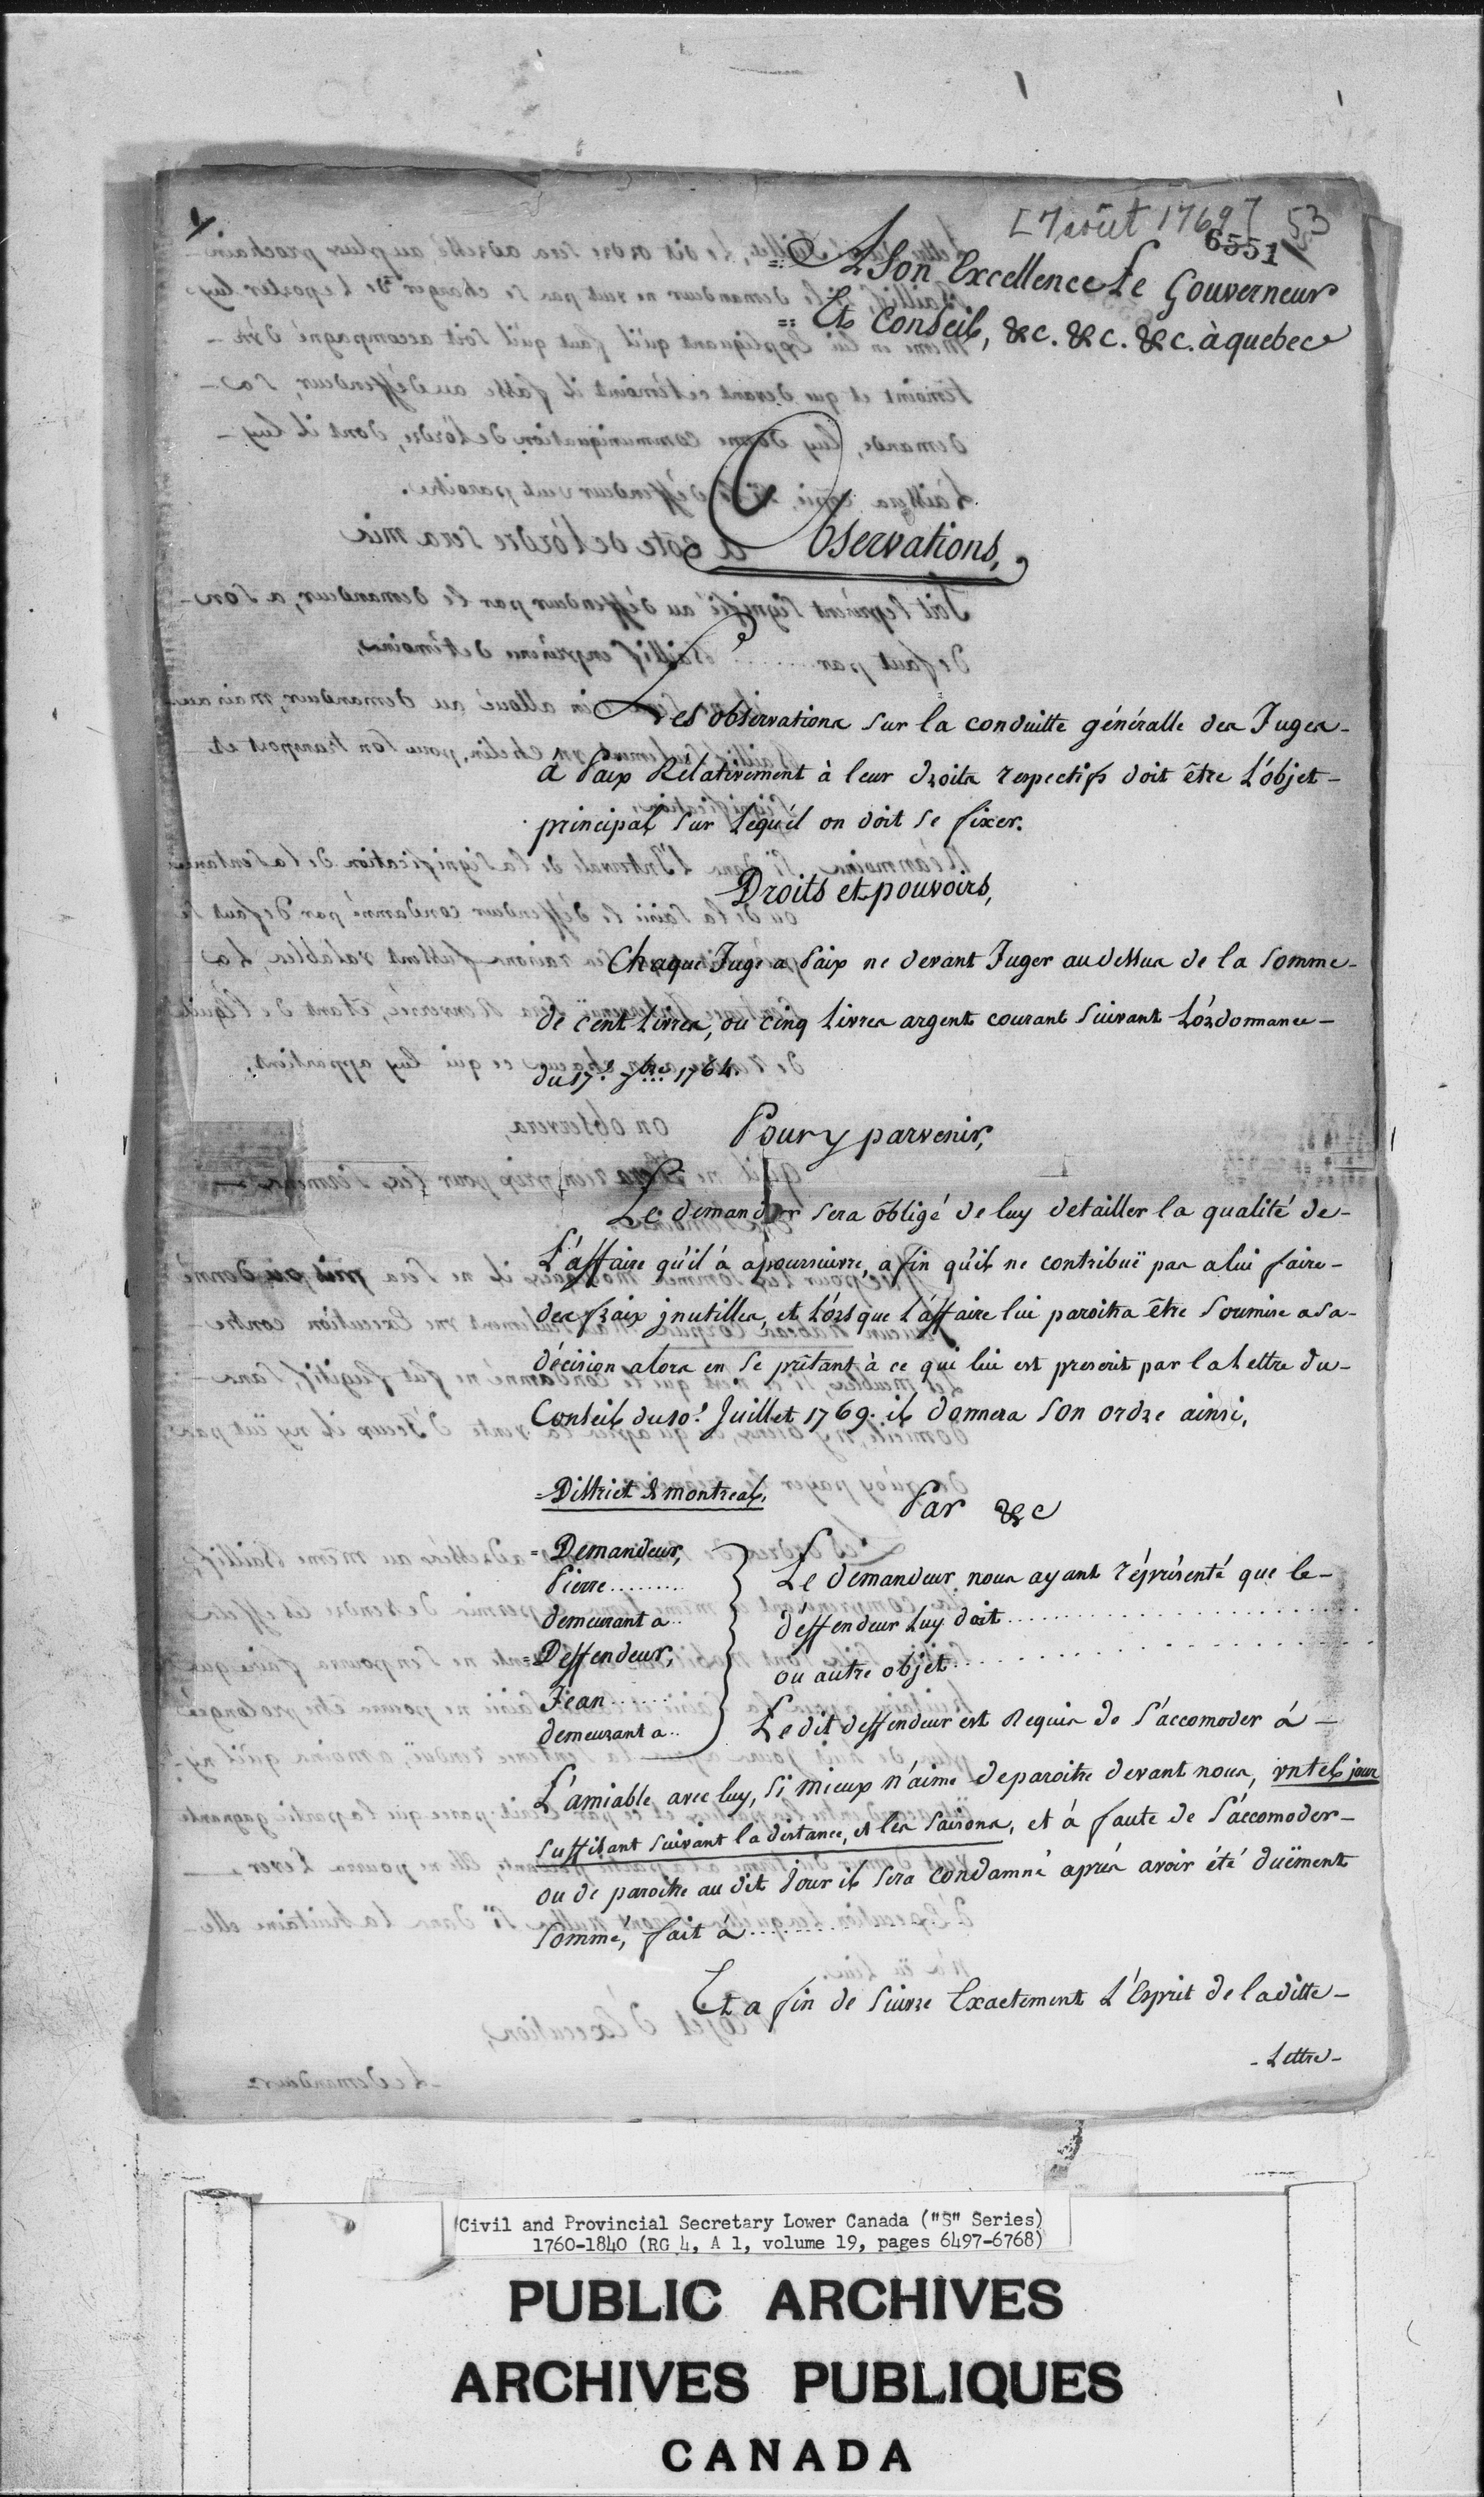 [7 août 1769] 53
6551
A Son Excellence Le Gouverneur
Et Conseil, &c. &c. &c. à quebec
Observations,
Les observations sur la conduitte généralle des Juges-
à Paix Relativement à leur droits respectifs doit être L'objet-
principal sur Lequ'el on doit se fixer.
Droits et pouvoirs,
Chaque Juge a Paix ne devant Juger au dessus de la Somme-
de cent Livres, ou cinq Livres argent courant suivant L'órdonnance-
du 17.e 7bre 1764.
Pour y parvenir,
Le demandeur sera obligé de luy detailler la qualité de-
L'affaire qu'il à apoursuivre, a fin qu'il ne contribuë pas a lui faire-
des fraix jnutilles, et L'órsque L'affaire lui paroitra être soumise a sa-
décision alors en se prêtant à ce qui lui est prescrit par la Lettre du-
Conseil du 10.e Juillet 1769. il donnera son ordre ainsi,
=District de montreal,
Par &c
=Demandeur,
Pierre.........
demeurant a..
=Deffendeur,
Jean......
demeurant a..
Le demandeur nous ayant réprésenté que le-
déffendeur Luy doit..............................
ou autre objet..............................
Le dit deffendeur est Requis de S'accomoder à-
L'amiable avec luy, si mieux n'aime deparoitre devant nous, vn tel jour
suffisant suivant la distance, et les saisons, et à faute de S'accomoder-
ou de paroitre au dit Jour il sera condamné aprés avoir été duëment
sommé, fait à..........
Et a fin de suivre Exactement L'Esprit de la ditte-
-Lettre-
Civil and Provincial Secretary Lower Canada ("S" Series)
1760-1840 (RG 4, A 1, volume 19, pages 6497-6768)
PUBLIC ARCHIVES
ARCHIVES PUBLIQUES
CANADA